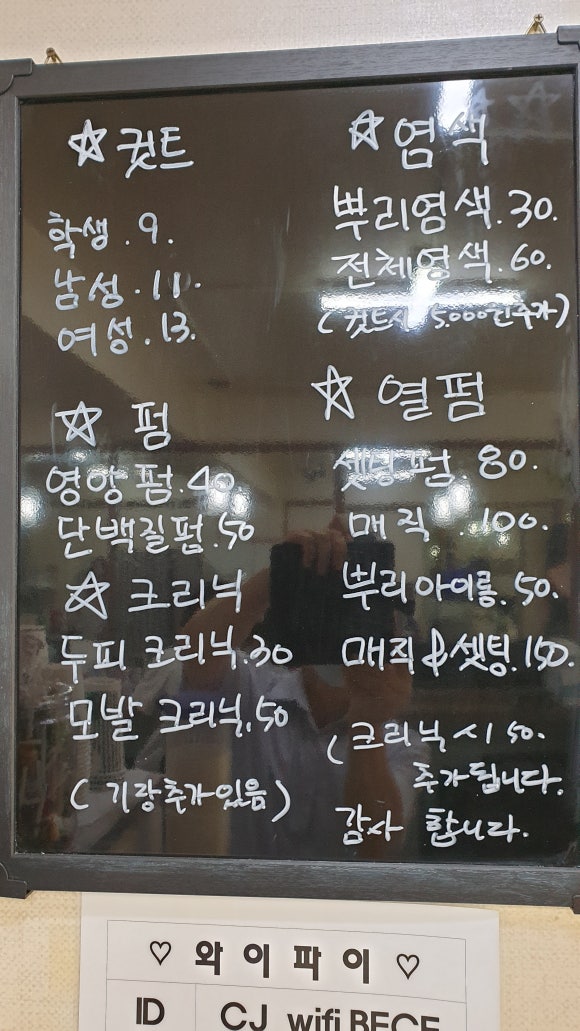 ☆ 컷트
학생. 9.
남성. 11.
여성. 13.
☆ 펌
영양펌. 40
단백질펌. 50
☆ 크리닉
두피 크리닉. 30
모발 크리닉. 50
(기장추가있음)
☆ 염색
뿌리염색. 30.
전체염색. 60.
(컷트시 5.000원추가)
☆ 열펌
셋팅펌. 80.
매직. 100.
뿌리아이롱. 50.
매직&셋팅. 150.
(크리닉시 50.
추가됩니다.
감사 합니다.
♡ 와 이 파 이 ♡
ID CJ_wifi BECE